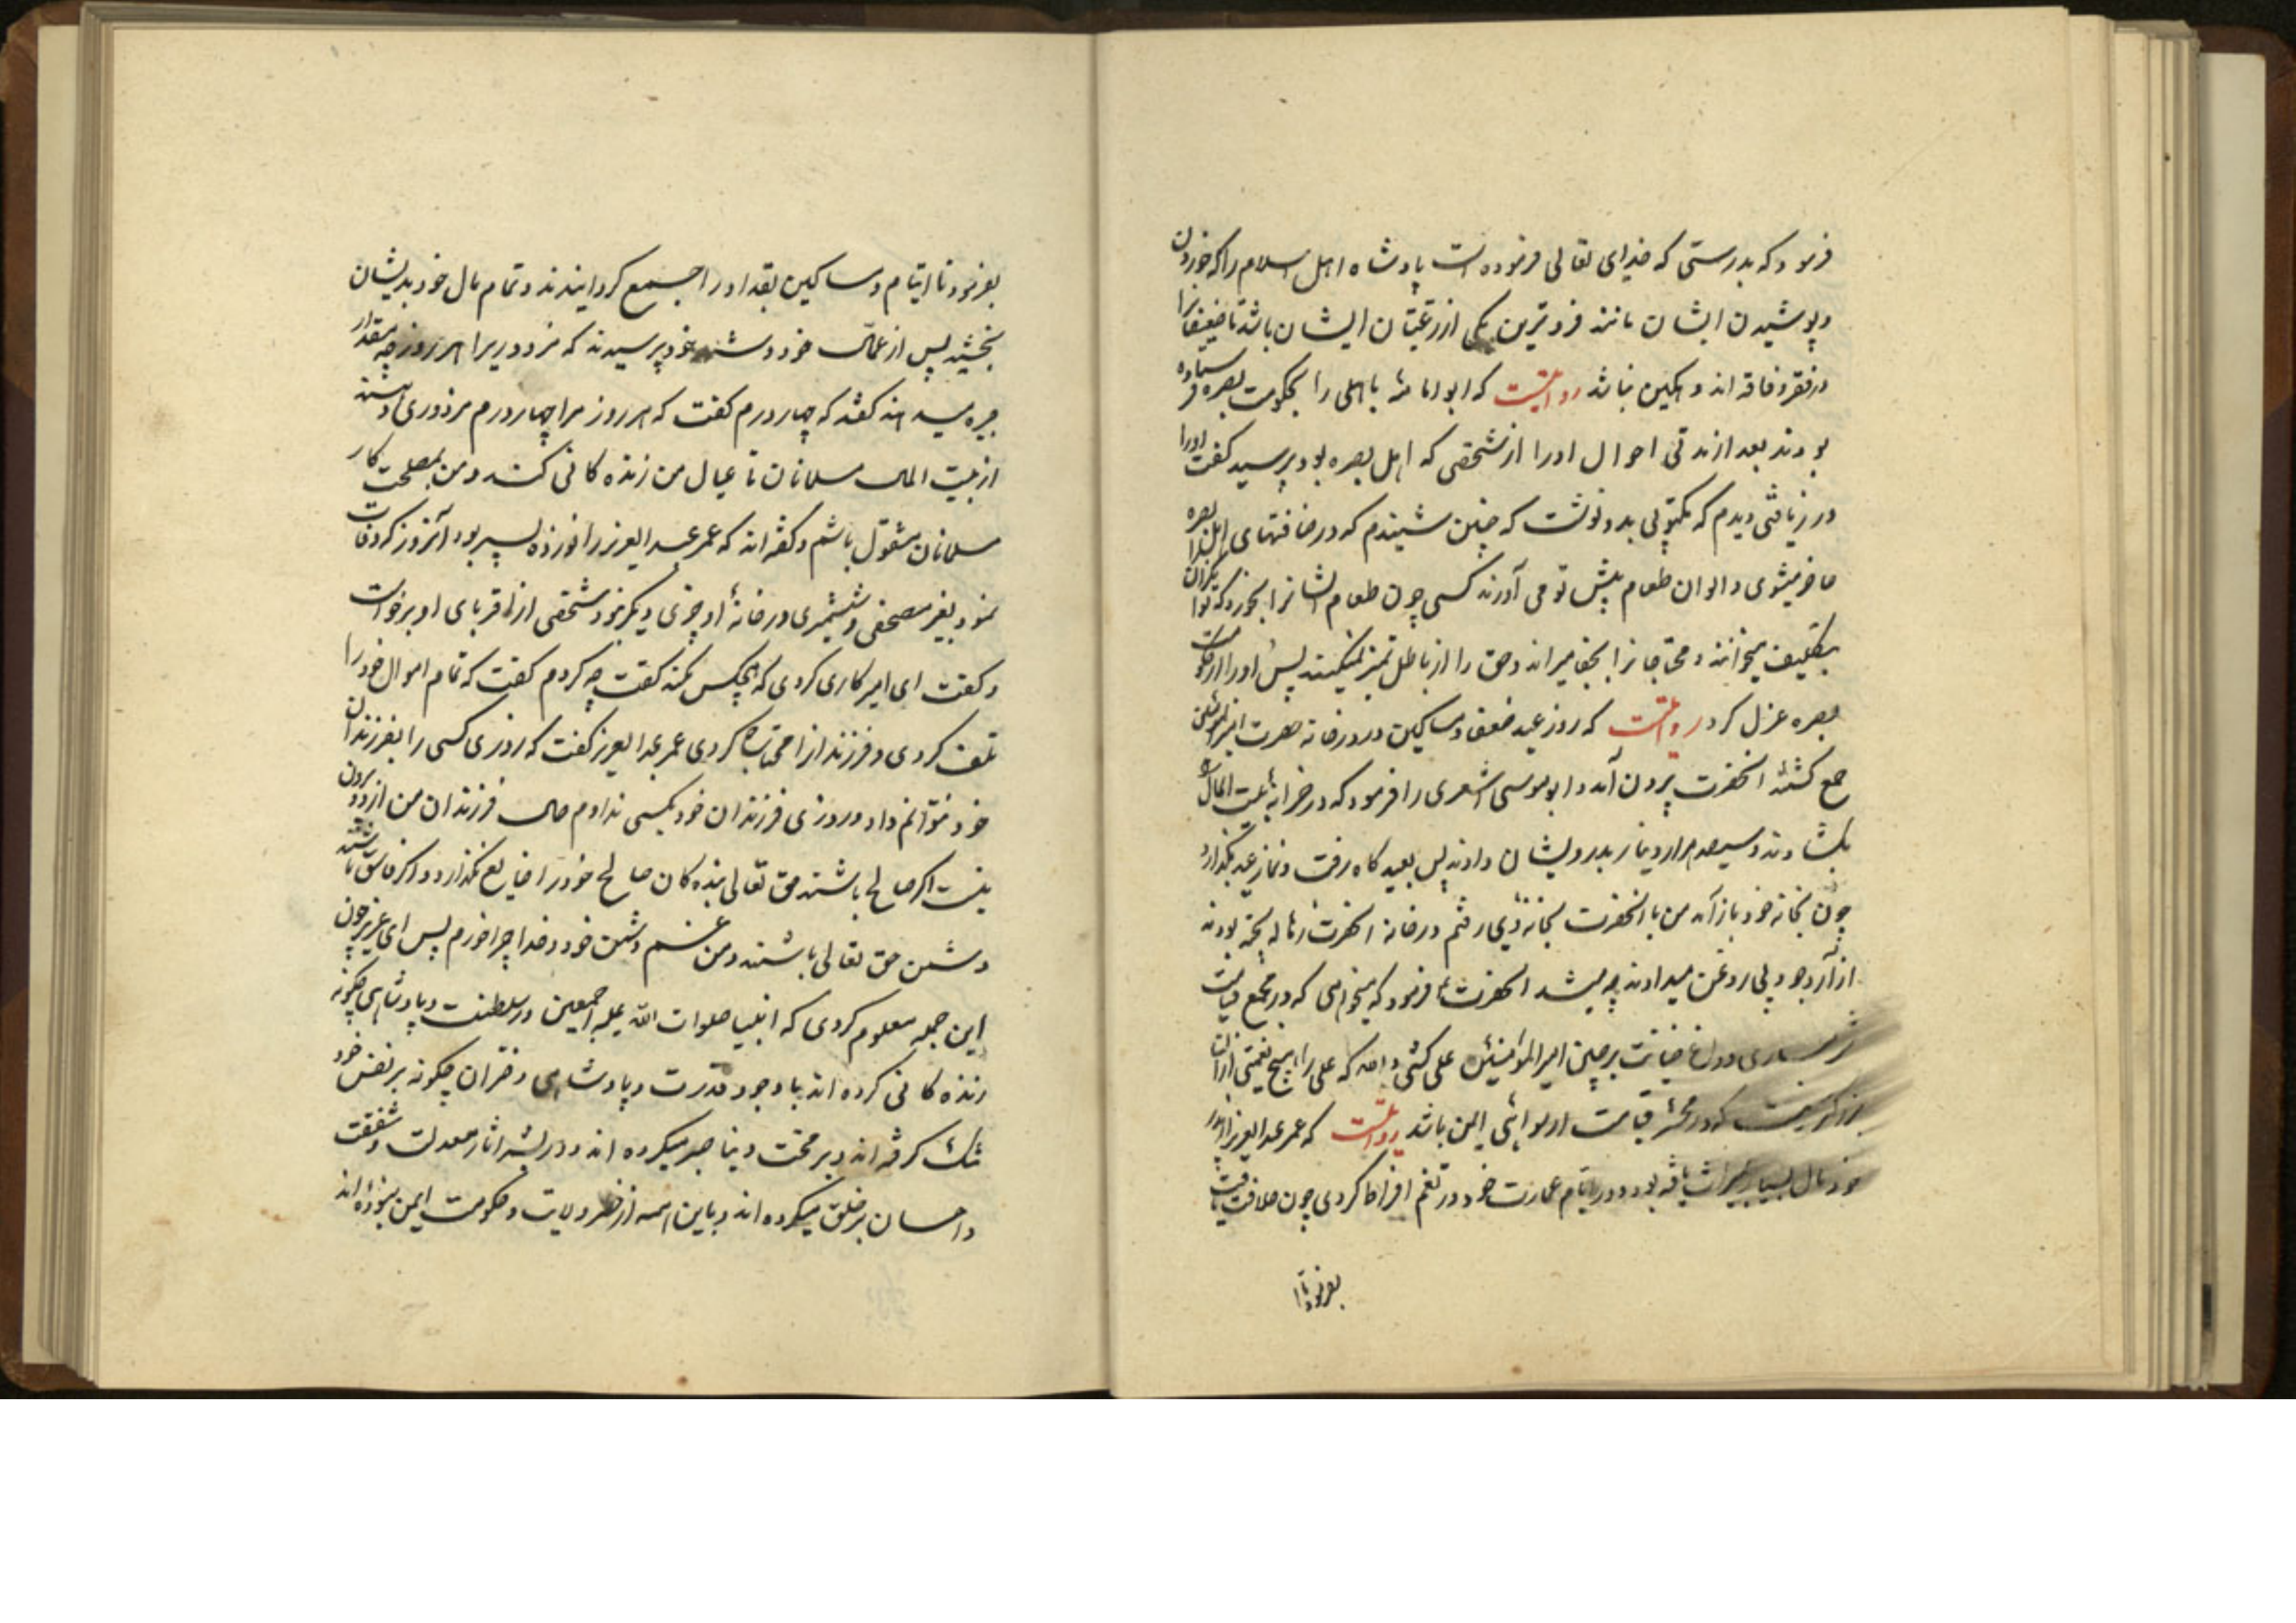 فرمود که بدرستی که خدای تعالی فرموده است پادشاه اهل اسلام را که خوردن
و پوشیدن ایشان مانند فروترین یکی از رعیتان ایشان باشد تا ضعیفانرا
در فقر و فاقه اند و مکین نباشد روایتست که ابو امامه باهلی را بحکومت بصره فرستاده
بودند بعد از مدتی احوال او را از شخصی که اهل بصره بود پرسید گفت او را
در زیافتی دیدم که مکتوبی بدو نوشت که چنین شنیدم که در ضیافتهای اهل بصره
حاضر میشوی و الوان طعام پیش تو می آورند کسی چون طعام ایشانرا بخورد که توانگران را
بتکلیف میخوانند و محتاجانرا بجفا میرانند و حق را از باطل تمیز نمیکنند پس او را از حکومت
بصره عزل کرد روایتست که روز عید ضعفا و مساکین در در خانه حضرت امیرالمؤمنین
جمع گشتند آنحضرت بیرون آمد و ابو موسی اشعری را فرمود که در خزانه بیت المال
بگشادند و سیصد هزار دینار بدرویشان دادند پس بعیدگاه رفت و نماز عید بگذارد
چون بخانه خود باز آمد من با آنحضرت بخانه وی رفتم در خانه آنحضرت رساله پخته بودند
از آرد جو و پی روغن میدادند چه میشد آنحضرت فرمود که میخواهی که در مجمع قیامت
شرمساری و داغ خیانت بر جبین امیرالمؤمنین علی کشی والله که علی را هیچ نعمتی از آن
بزرگتر نیست که در محشر قیامت از رسوائی ایمن باشد روایتست که عمر عبدالعزیز از پدر
خود مال بسیار بمیراث یافته بود و در ایام عمارت خود در تنعم افراط کردی چون خلافت یافت
بفرمود تا
بفرمود تا ایتام و مساکین بغداد را جمع گردانیدند و تمام مال خود بدیشان
بخشید پس از عمال خود پرسیدند که مزدوریرا هر روز چه مقدار
جیره میدهند گفتند که چهار درم گفت که هر روز مرا چهار درم مزدوری دهند
از بیت المال مسلمانان تا عیال من زنده کانی کنند و من بمصلحت کار
مسلمانان مشغول باشم و گفته اند که عمر عبدالعزیز را نوزده پسر بود آنروز که وفات
نمود بغیر مصحفی و شمشیری در خانه او چیزی دیگر نبود شخصی از اقربای او برخواست
و گفت ای امیر کاری کردی که هیچکس نکند گفت چه کردم گفت که تمام اموال خود را
تلف کردی و فرزندانرا محتاج کردی عمر عبدالعزیز گفت که روزی کسی را بفرزندان
خود نتوانم داد و روزی فرزندان خود بکسی ندادم حال فرزندان من از دو بیرون
نیست اگر صالح باشند حق تعالی بنده کان صالح خود را ضایع نگذارد و اگر فاسق باشند
دشمن حق تعالی باشند و من غم دشمن خود و خدا چرا خورم پس ای عزیز چون
این جمله معلوم کردی که انبیا صلوات الله علیهم اجمعین در سلطنت و پادشاهی چگونه
زنده کانی کرده اند با وجود قدرت و پادشاهی و قران چگونه بر نفس خود
تنگ گرفته اند و بر محنت دنیا صبر میکرده اند و در نشر اثار معدلت و شفقت
و احسان بر خلق میکرده اند و باین همه از خطر ولایت و حکومت ایمن نبوده اند